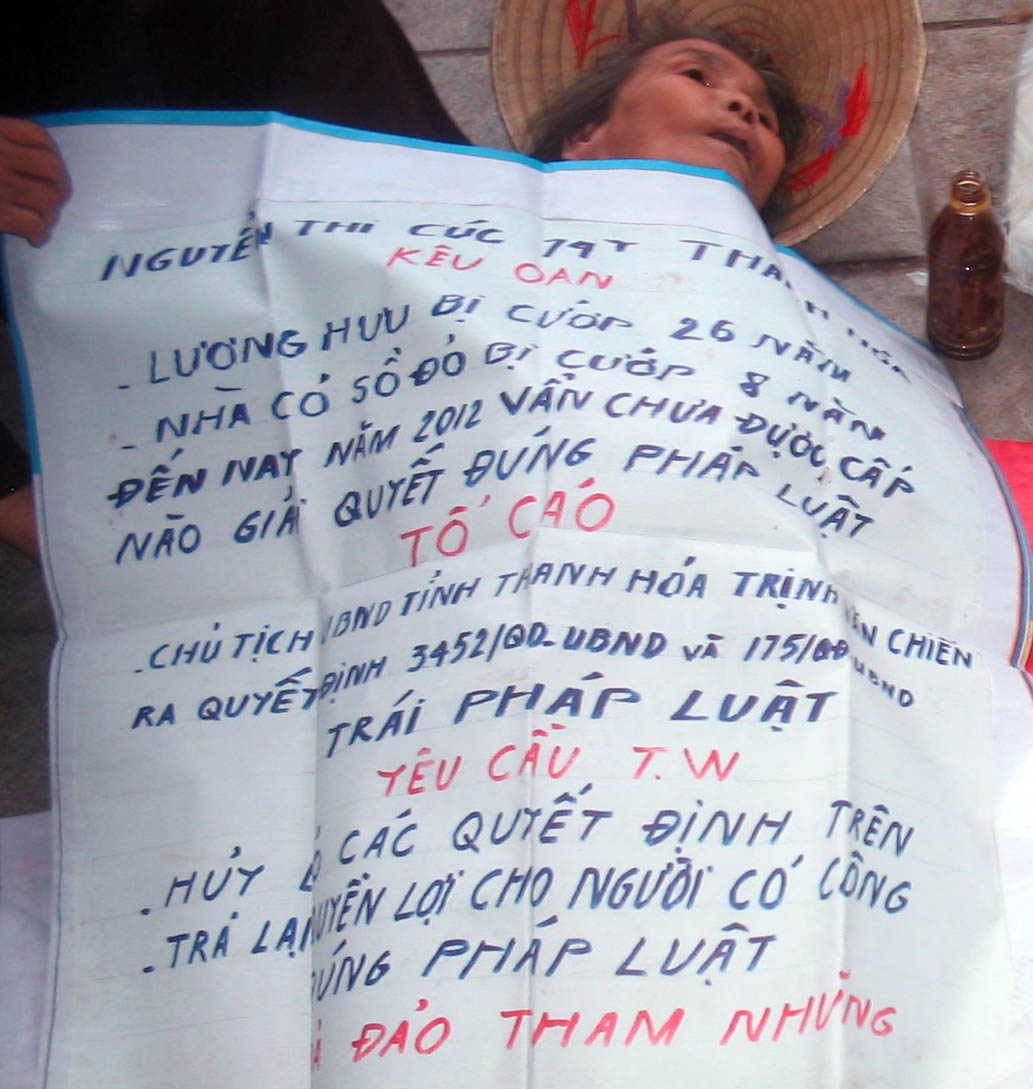 NGUYỄN THỊ CÚC 79T THANH HÓA
KÊU OAN
- LƯƠNG HƯU BỊ CƯỚP 26 NĂM
- NHÀ CÓ SỔ ĐỎ BỊ CƯỚP 8 NĂM
ĐẾN NAY NĂM 2012 VẪN CHƯA ĐƯỢC CẤP
NÀO GIẢI QUYẾT ĐÚNG PHÁP LUẬT
TỐ CÁO
- CHỦ TỊCH UBND TỈNH THANH HÓA TRỊNH VĂN CHIẾN
RA QUYẾT ĐỊNH 3452/QĐ-UBND VÀ 175/QĐ UBND
TRÁI PHÁP LUẬT
YÊU CẦU T.W
- HỦY BỎ CÁC QUYẾT ĐỊNH TRÊN
- TRẢ LẠI QUYỀN LỢI CHO NGƯỜI CÓ CÔNG
ĐÚNG PHÁP LUẬT
ĐẢO THAM NHŨNG